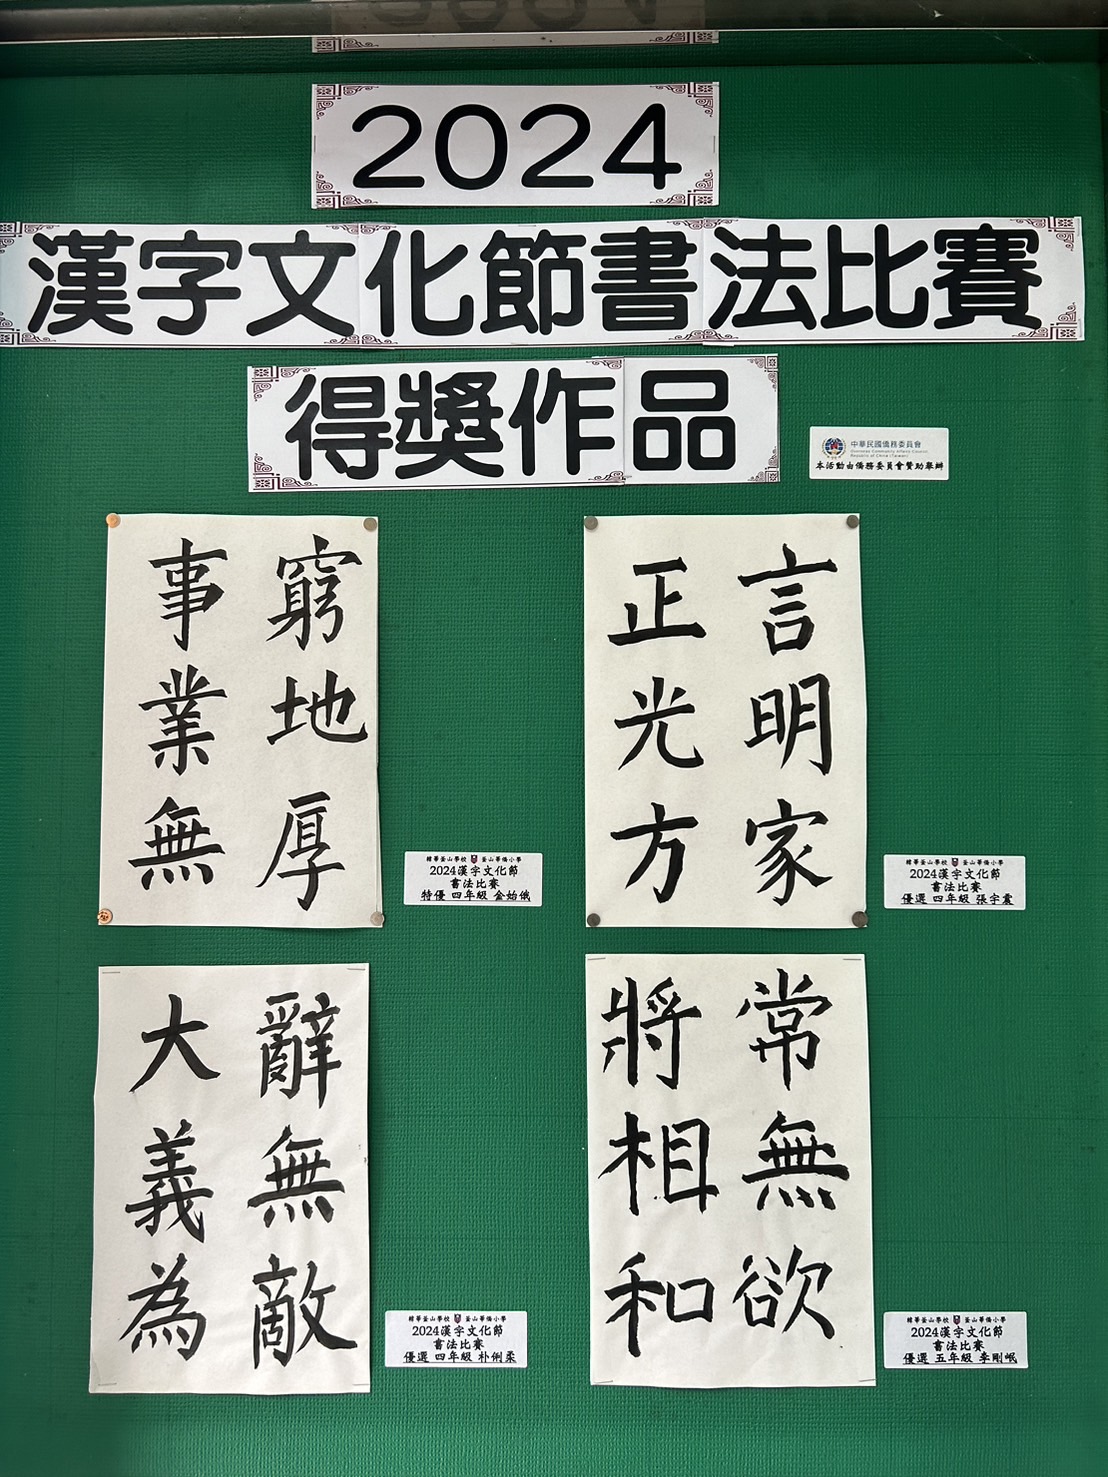 2024
漢字文化節書法比賽
得獎作品
中華民國僑務委員會
Overseas Community Affairs Council,
Republic of China (Taiwan)
本活動由僑務委員會贊助舉辦
窮地厚
事業無
韓華釜山學校 釜山華僑小學
2024漢字文化節
書法比賽
特優 四年級 金始俄
言明家
正光方
韓華釜山學校 釜山華僑小學
2024漢字文化節
書法比賽
優選 四年級 張宇震
辭無敵
大義為
韓華釜山學校 釜山華僑小學
2024漢字文化節
書法比賽
優選 四年級 朴俐柔
常無欲
將相和
韓華釜山學校 釜山華僑小學
2024漢字文化節
書法比賽
優選 五年級 李剛岷